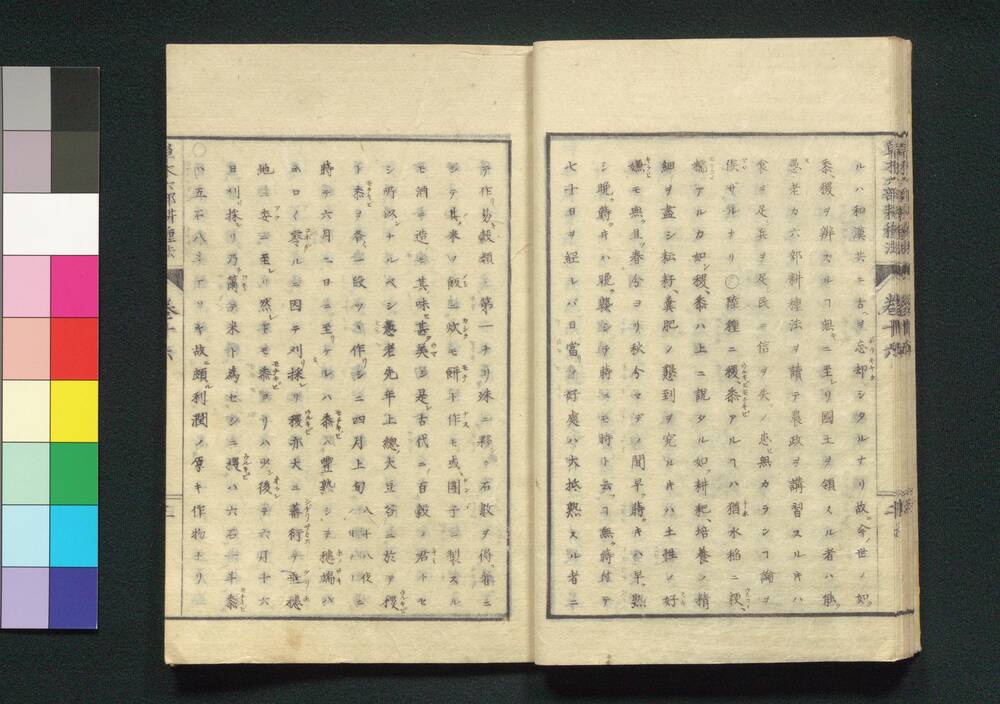 ルハ和漢共ニ古ヲ忘却シタルナリ故ニ今ノ世ノ如
黍稷ヲ辨ズルヿ無ニ至レリ國土ヲ領スル者ハ能
愚老カ六部耕種法ヲ讀テ農政ヲ講習スルキハ
食ヲ足兵ヲ足民ニ信ヲ失ノ患無カランヿ論ヲ
俟ザルナリ〇陸種ニ稷黍アルヿハ猶水稲ニ粳
糯アルカ如シ稷黍ハ上ニ説タル如耕耙培養ノ精
細ヲ盡シ耘耔糞肥ノ懇到ヲ究ルキハ土性ノ好
嫌モ無且ツ春分ヨリ秋分マデノ間早蒔キハ早熟
シ晩蒔キハ晩熟シテ時シモ時ト云ヿ無蒔付テ
七十日ヲ經レバ日當ノ好處ハ大抵熟スル者ニ
草木六部耕種法 巻十六
テ作リ易穀類ノ第一ナリ殊ニ夥ク石數ヲ得者ニ
シテ其米ハ飯ニ炊モ餅ト作モ或團子ニ製スル
モ酒ニ造モ其味甚美シ是古代ニ百穀ノ君トセ
シ所以ンナルベシ愚老先年上總大豆谷ニ於テ稷
ト黍ヲ各一段ツヽ作リシニ四月上旬
時テ六月二日ニ至ケレハ黍ハ豐熟シテ穂端ハ
ホロく零ルニ因テ刈リ採リ稷亦大ニ蕃衍テ垂穂
地ニ委ニ至レリ然レドモ黍ヨリハ少シ後テ六月十六
日刈リ採リ乃舂テ米ト爲セシニ稷ハ六石二斗黍
ハ五石八斗アリキ故ニ頗ル利潤ノ厚キ作物ナリ